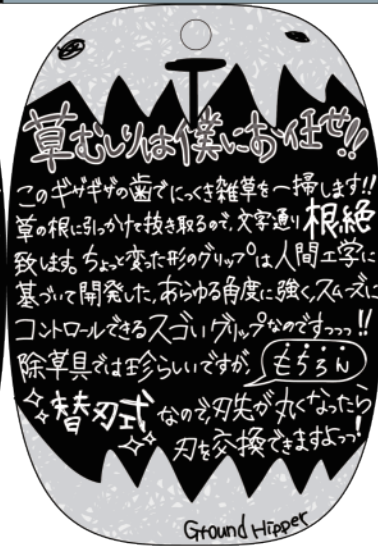 草むしりは僕にお任せ!!
このギザギザの歯でにっくき雑草を一掃します!!
草の根に引っかけて抜き取るので、文字通り根絶
致します。ちょっと変った形のグリップは人間工学に
基づいて開発した、あらゆる角度に強く、スムーズに
コントロールできるスゴいグリップなのですっっっ!!
除草具では珍らしいですが、もちろん
替刃式なので、刃先が丸くなったら
刃を交換できますよっっ!
Ground Hipper